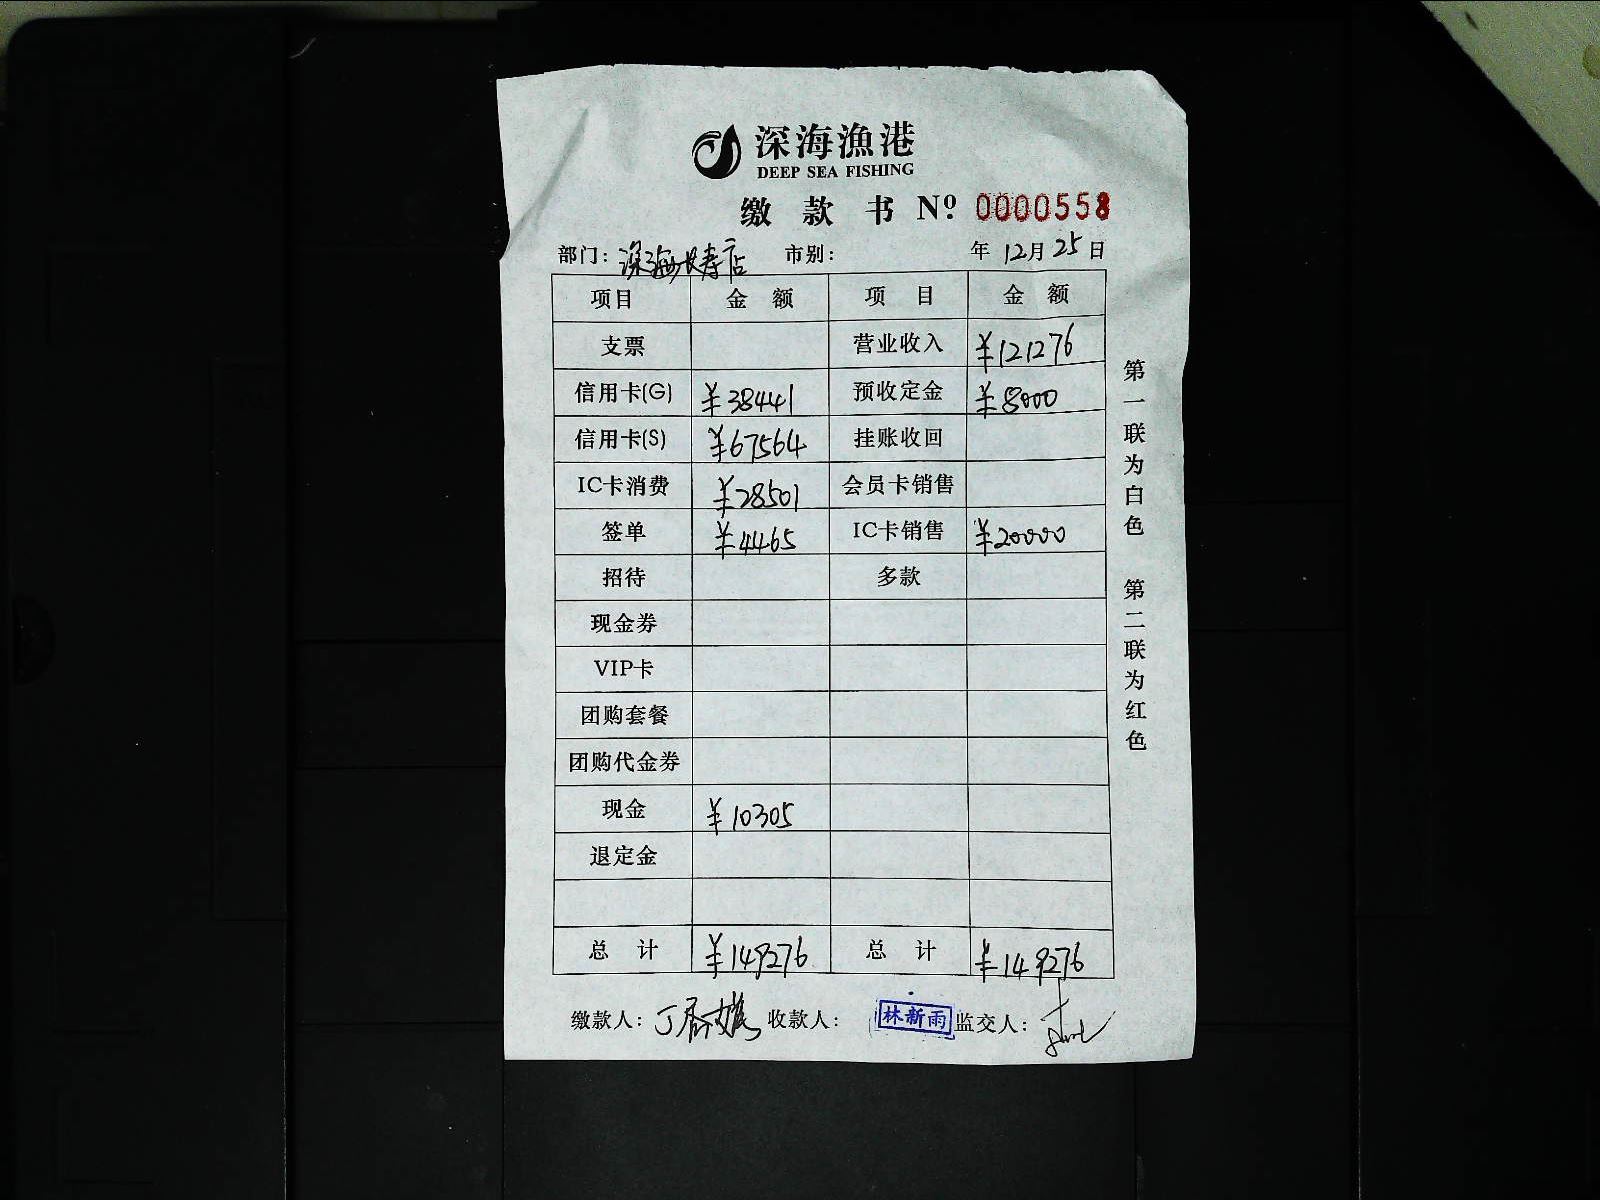 深海漁港
DEEP SEA FISHING
缴 款 书 Nº 0000558
部门: 深海长寿店 市别: 年 12月 25日
项目 金 额 项 目 金 额
支票 营业收入 ¥121276
信用卡(G) ¥38441 预收定金 ¥8000
信用卡(S) ¥67564 挂账收回
IC卡消费 ¥28501 会员卡销售
签单 ¥4465 IC卡销售 ¥20000
招待 多款
现金券
VIP卡
团购套餐
团购代金券
现金 ¥10305
退定金
总 计 ¥149276 总 计 ¥149276
缴款人: 收款人: 林新雨 监交人:
第一联为白色 第二联为红色